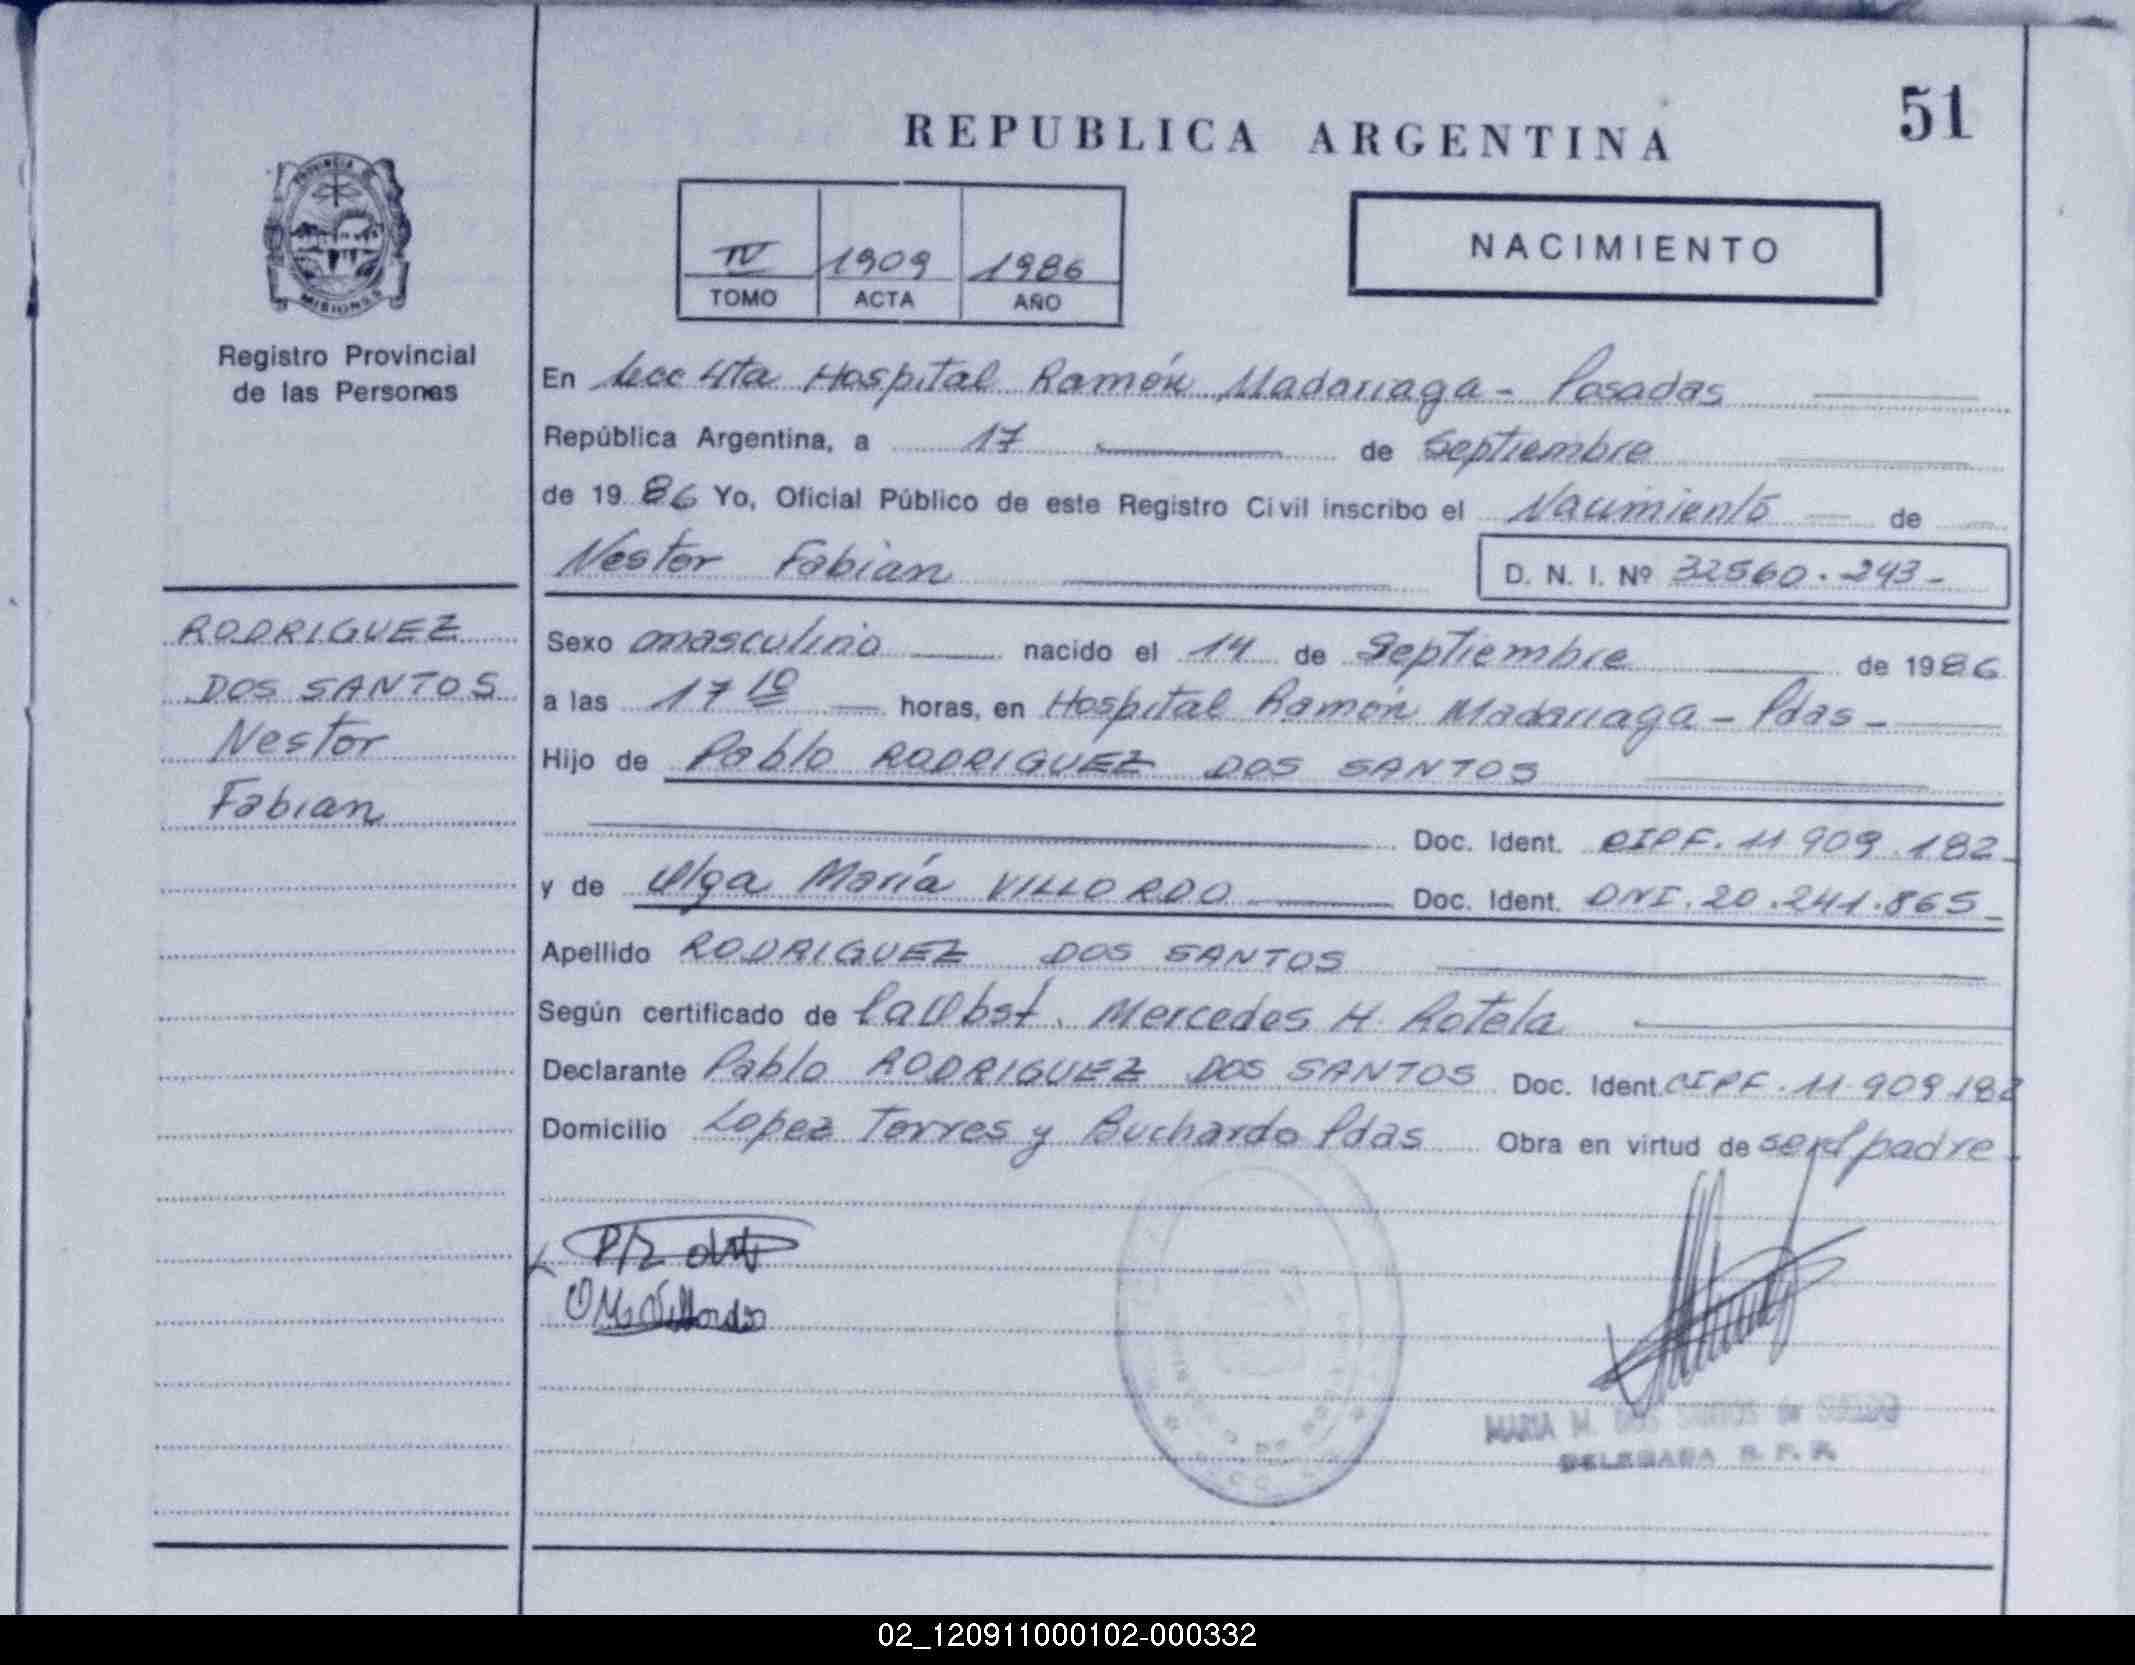 51
REPUBLICA ARGENTINA
PROVINCIA DE
MISIONES
IV 1909 1986
TOMO ACTA AÑO
NACIMIENTO
Registro Provincial
de las Personas
En Secc 4ta Hospital Ramón Madariaga - Posadas
República Argentina, a 17 de Septiembre
de 1986 Yo, Oficial Público de este Registro Civil inscribo el Nacimiento de
Nestor Fabian D. N. I. Nº 32560.243-
RODRIGUEZ
DOS SANTOS
Nestor
Fabian
Sexo masculino nacido el 14 de Septiembre de 1986
a las 17 10 horas, en Hospital Ramón Madariaga - Pdas -
Hijo de Pablo RODRIGUEZ DOS SANTOS
Doc. Ident. CIPF. 11 909.182-
y de Olga María VILLORDO Doc. Ident. DNI. 20.241.865-
Apellido RODRIGUEZ DOS SANTOS
Según certificado de la Obst. Mercedes H. Rotela
Declarante Pablo RODRIGUEZ DOS SANTOS Doc. Ident. CIPF. 11 909 182
Domicilio Lopez Torres y Buchardo Pdas Obra en virtud de ser padre
MARIA M. DOS SANTOS de
DELEGADA R. P. P.
02_120911000102-000332